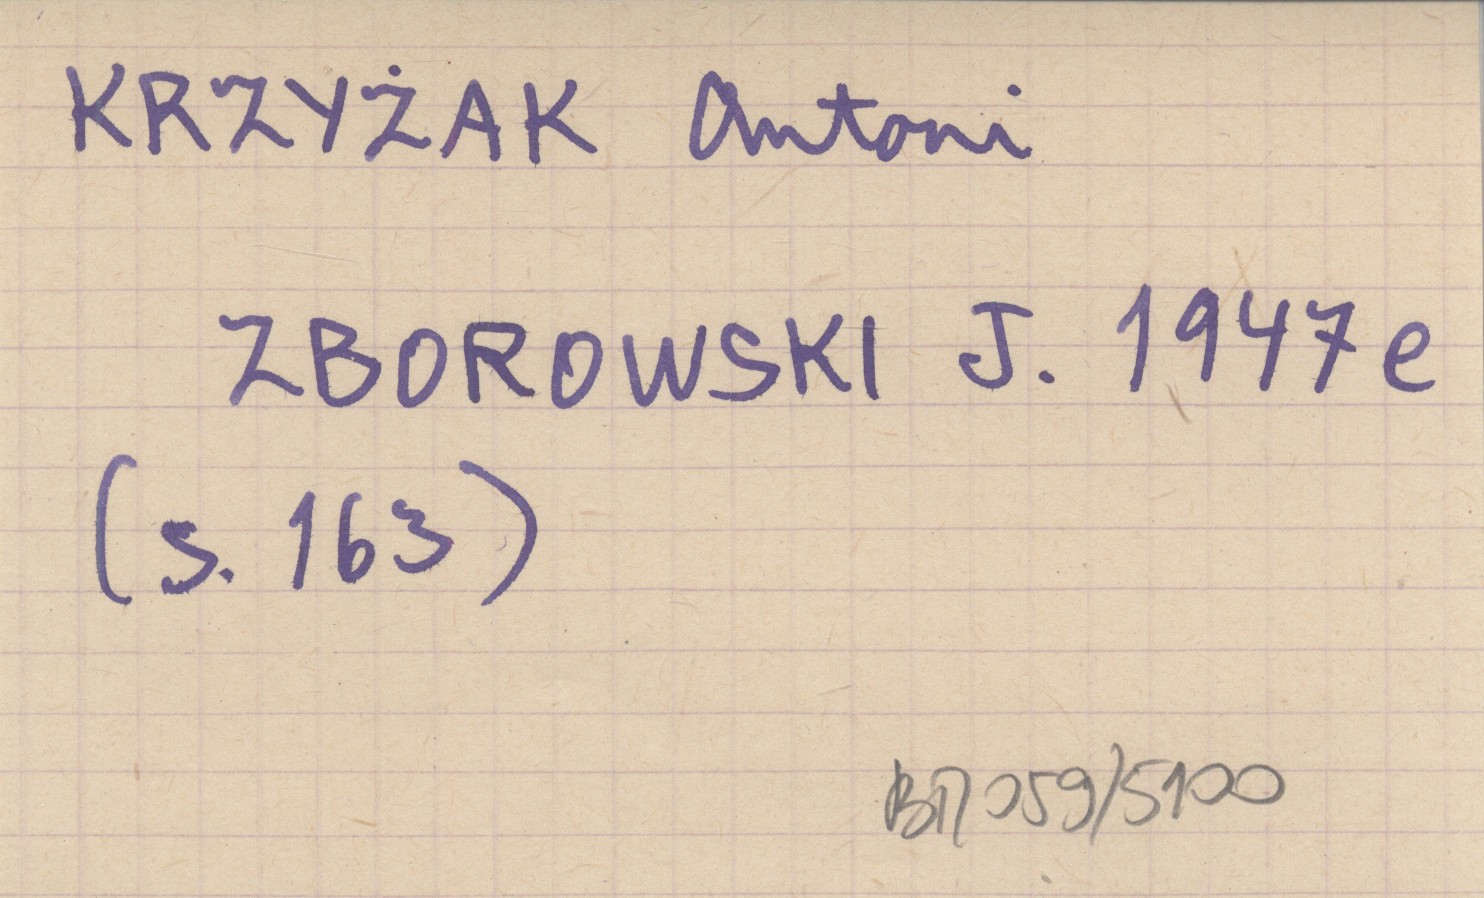 KRZYŻAK Antoni
ZBOROWSKI J. 1947e
(s. 163)
059/5100